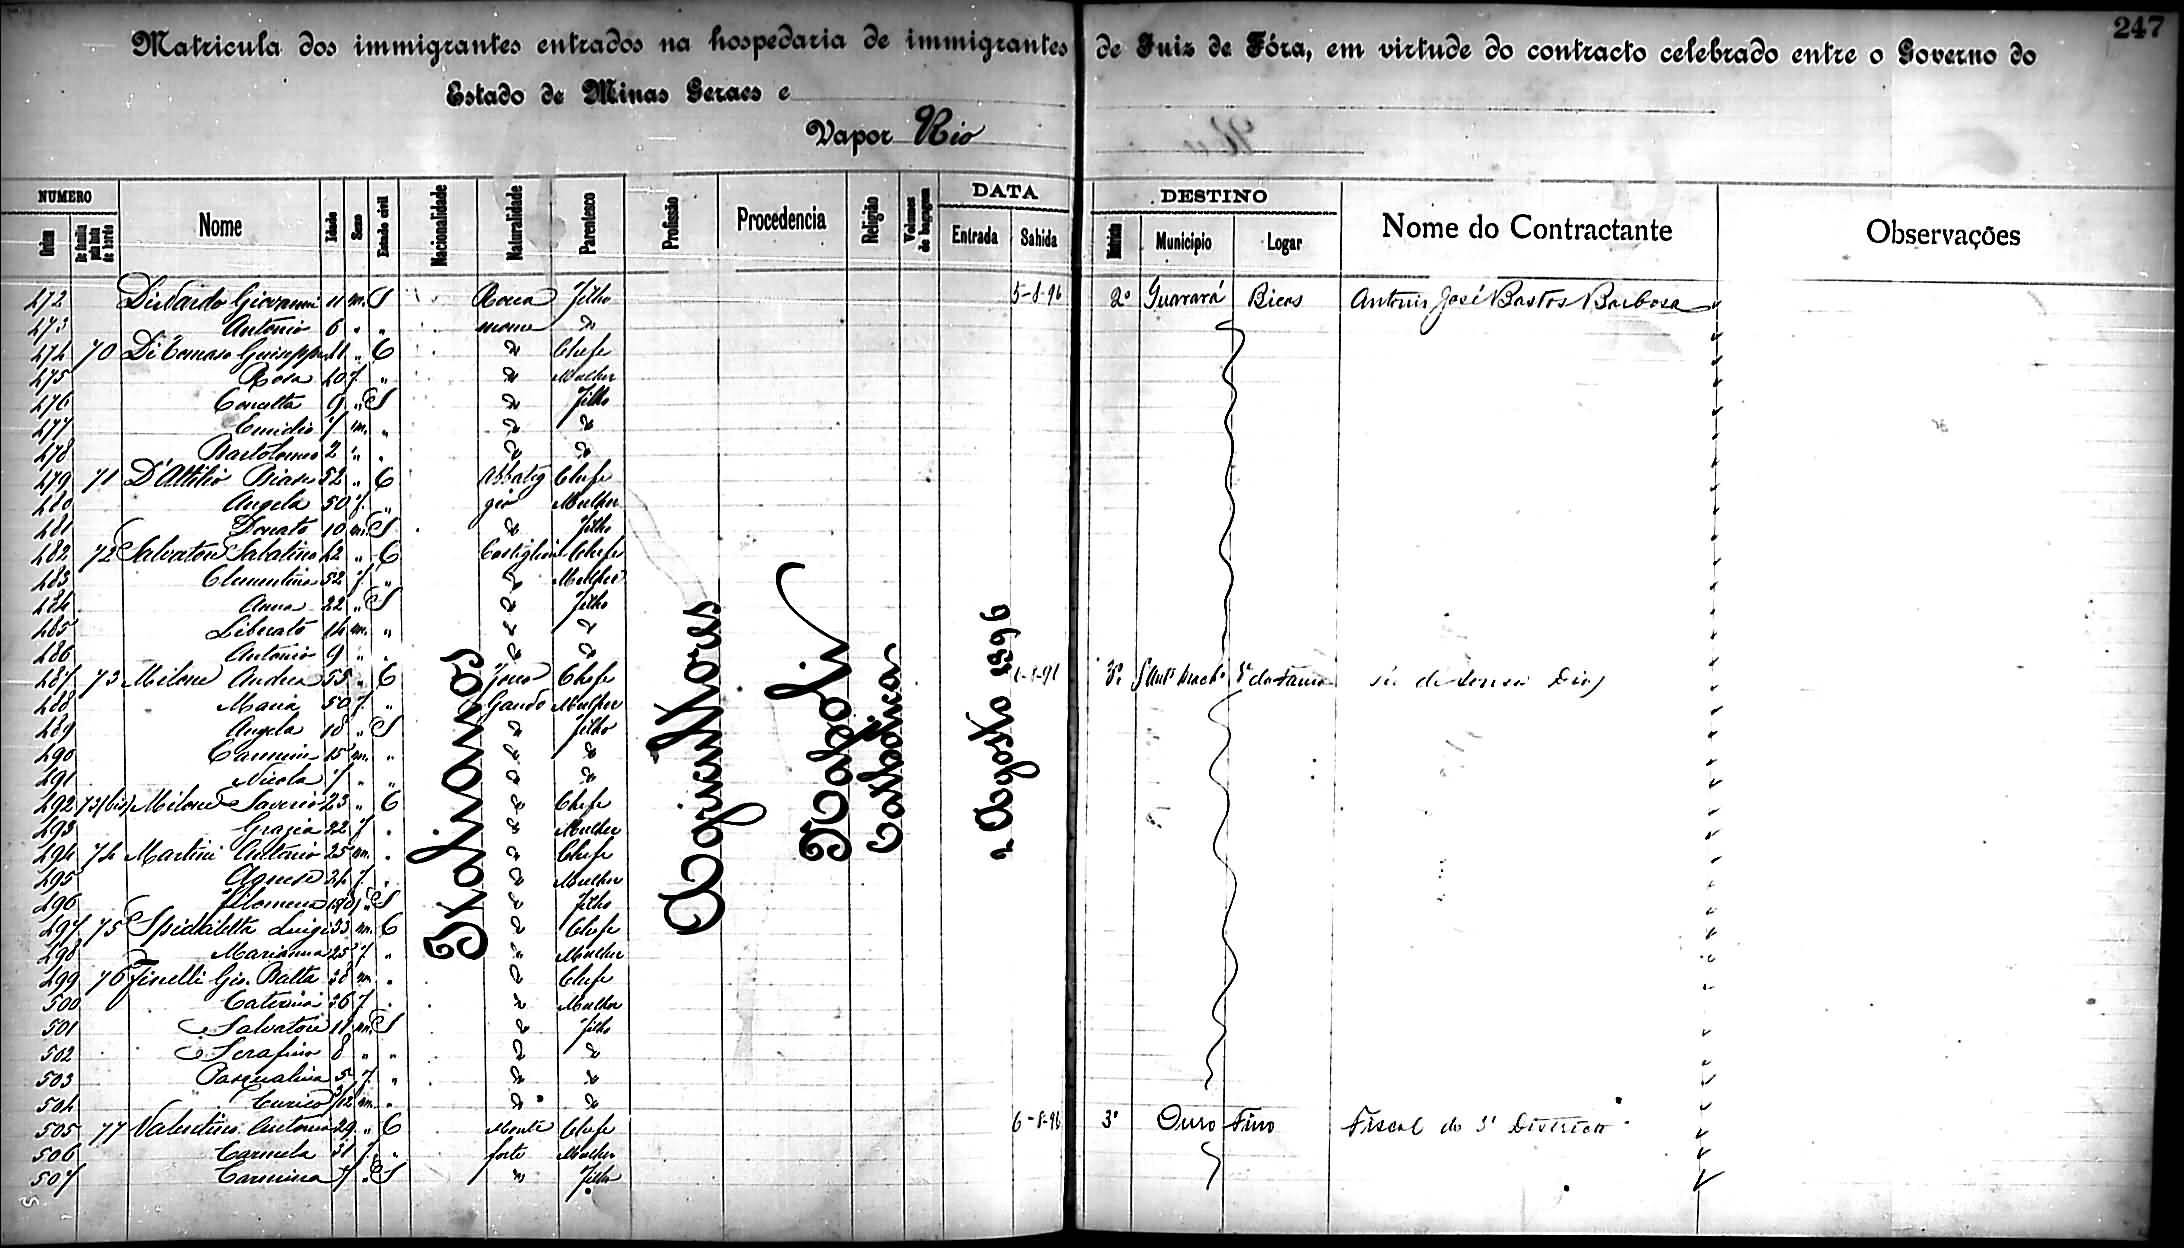 247
Matricula dos immigrantes entrados na hospedaria de immigrantes de Juiz de Fóra, em virtude do contracto celebrado entre o Governo do
Estado de Minas Geraes e
Vapor Rio
NUMERO Nome Idade Sexo Estado civil Nacionalidade Naturalidade Parentesco Profissão Procedencia Religião Volumes de bagagem DATA DESTINO Nome do Contractante Observações
Ordem De familia pela lista de bordo Entrada Sahida Districto Municipio Logar
Italianos Agricultores Napoli Catholica 2 Agosto 1896
472 Giovanni 11 m. S Rocca Filho 5-8-96 2º Guarará Bicas Antonio José Bastos Barbosa
473 Antonio 6 " " " "
474 70 Di Tomaso Giuseppe 41 " C " Chefe
475 Rosa 40 f. " " Mulher
476 Concetta 9 " S " Filho
477 Emidio 7 m. " " "
478 Bartolomeo 2 " " " "
479 71 D'Attilio Biase 52 " C Abbateg Chefe
480 Angela 50 f. " gio Mulher
481 Donato 10 m. S " Filho
482 72 Salvatore Sabatino 42 " C Castiglione Chefe
483 Clementina 52 f. " " Mulher
484 Anna 22 " S " Filho
485 Liberato 14 m. " " "
486 Antonio 9 " " " "
487 73 Milone Andrea 55 " C Chefe 3º
488 Maria 50 f. " Mulher
489 Angela 18 " S " Filho
490 Carmine 15 m. " " "
491 Nicola 7 " " " "
492 73(bis) Milone Saverio 23 " C " Chefe
493 Grazia 22 f. " " Mulher
494 74 Martini Antonio 25 m. " " Chefe
495 Agnese 24 f. " " Mulher
496 Filomena " S " Filho
497 75 Luigi 33 m. C " Chefe
498 Marianna 25 f. " " Mulher
499 76 Finelli Gio. Batta 38 m. " " Chefe
500 Caterina 36 f. " " Mulher
501 Salvatore 11 m. S " Filho
502 Serafino 8 " " " "
503 Pasqualina 5 f. " " "
504 Enrico m. " " "
505 77 Valentino Antonio 29 " C Monte Chefe 6-8-96 3º Ouro Fino Fiscal do 3º Districto
506 Carmela 31 f. " forte Mulher
507 Carmina 7 " S " Filho